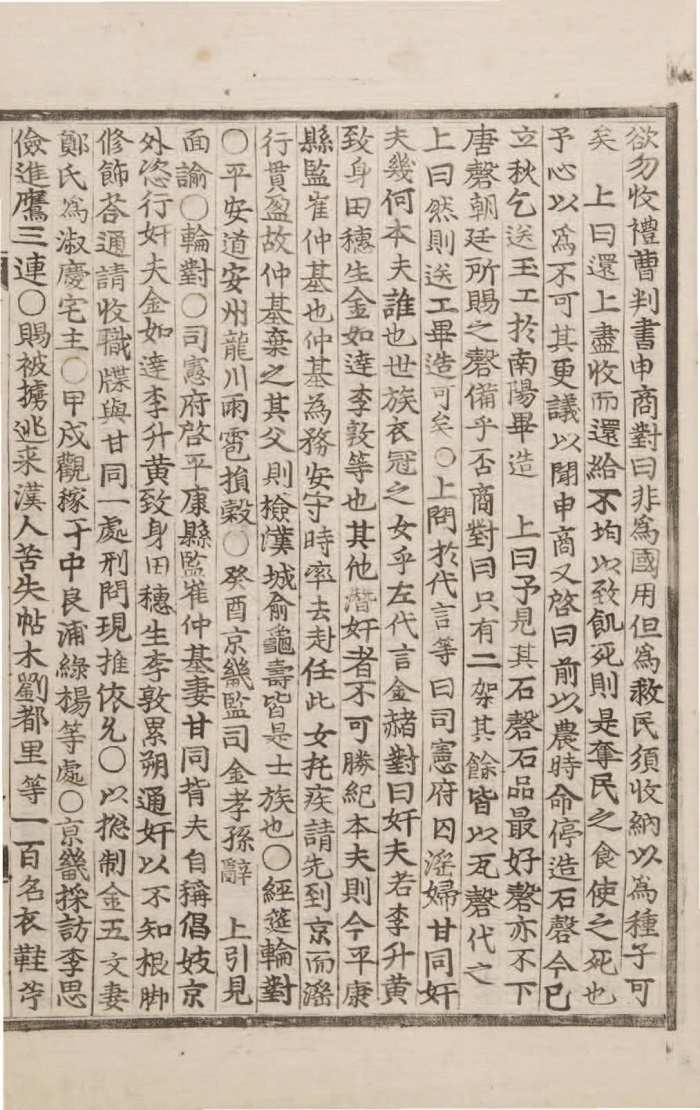 欲勿收禮曹判書申商對曰非爲國用但爲救民須收納以爲種子可
矣　上曰還上盡收而還給不均以致飢死則是奪民之食使之死也
予心以爲不可其更議以聞申商又啓曰前以農時命停造石磬今已
立秋乞送玉工於南陽畢造　上曰予見其石磬石品最好磬亦不下
唐磬朝廷所賜之磬備乎否商對曰只有二架其餘皆以瓦磬代之
上曰然則送工畢造可矣○上問於代言等曰司憲府囚淫婦甘同奸
夫幾何本夫誰也世族衣冠之女乎左代言金赭對曰奸夫若李升黄
致身田穗生金如達李敦等也其他潛奸者不可勝紀本夫則今平康
縣監崔仲基也仲基爲務安守時率去赴任此女托疾請先到京而淫
行貫盈故仲基棄之其父則檢漢城俞龜壽皆是士族也○經筵輪對
○平安道安州龍川雨雹損穀○癸酉京畿監司金孝孫辭　上引見
面諭○輪對○司憲府啓平康縣監崔仲基妻甘同背夫自稱倡妓京
外恣行奸夫金如達李升黄致身田穗生李敦累朔通奸以不知根脚
修飾荅通請收職牒與甘同一處刑問現推依允○以摠制金五文妻
鄭氏爲淑慶宅主○甲戌觀稼于中良浦綠楊等處○京畿採訪李思
儉進鷹三連○賜被擄逃来漢人苦失帖木劉都里等一百名衣鞋苧